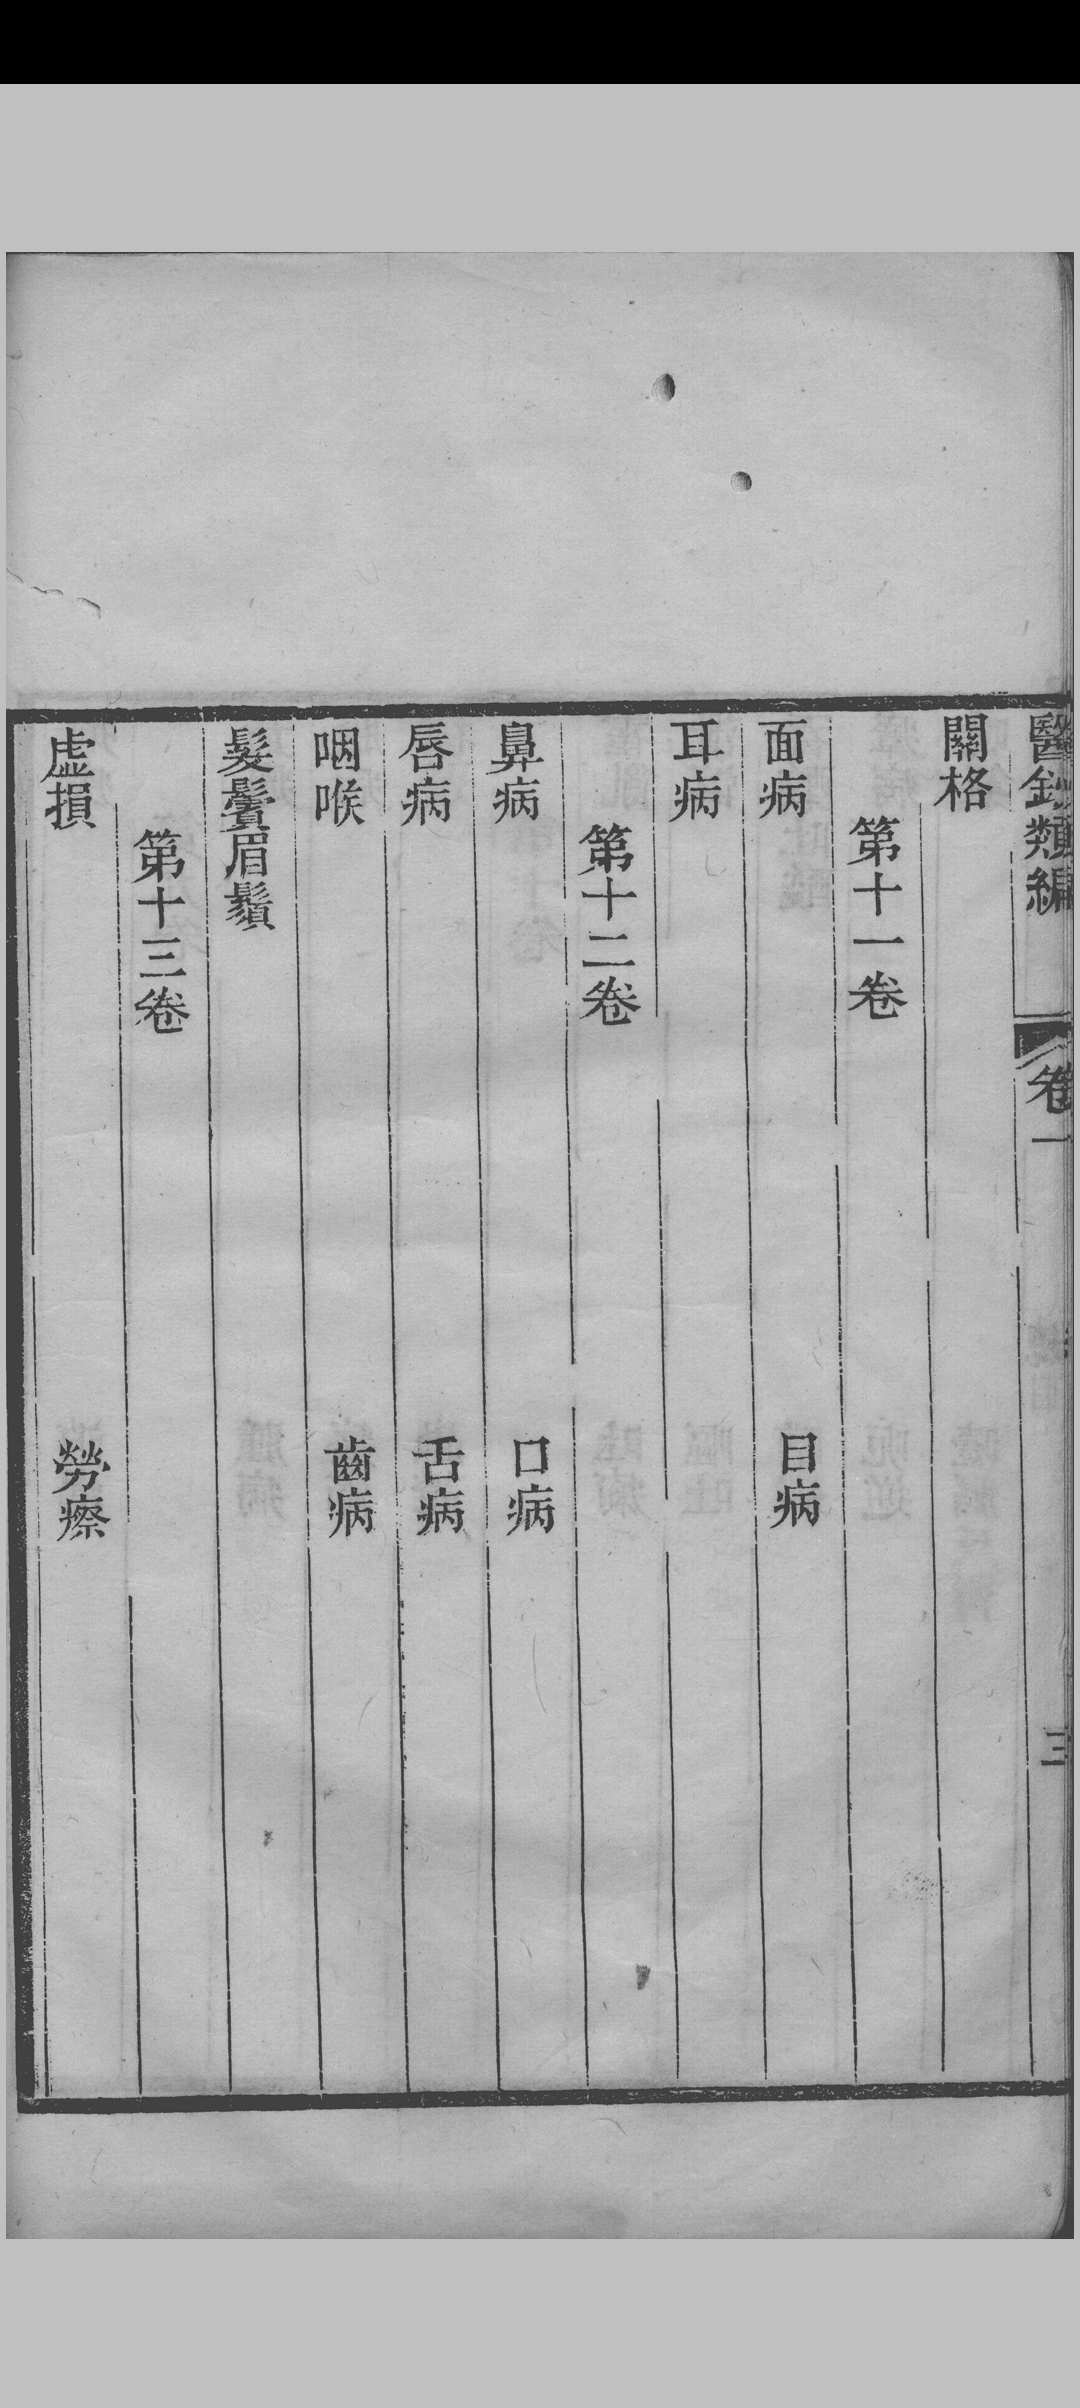 醫鈔類編 卷一 三
關格
第十一卷
面病 目病
耳病
第十二卷
鼻病 口病
唇病 舌病
咽喉 齒病
髮鬢眉鬚
第十三卷
虛損 勞瘵